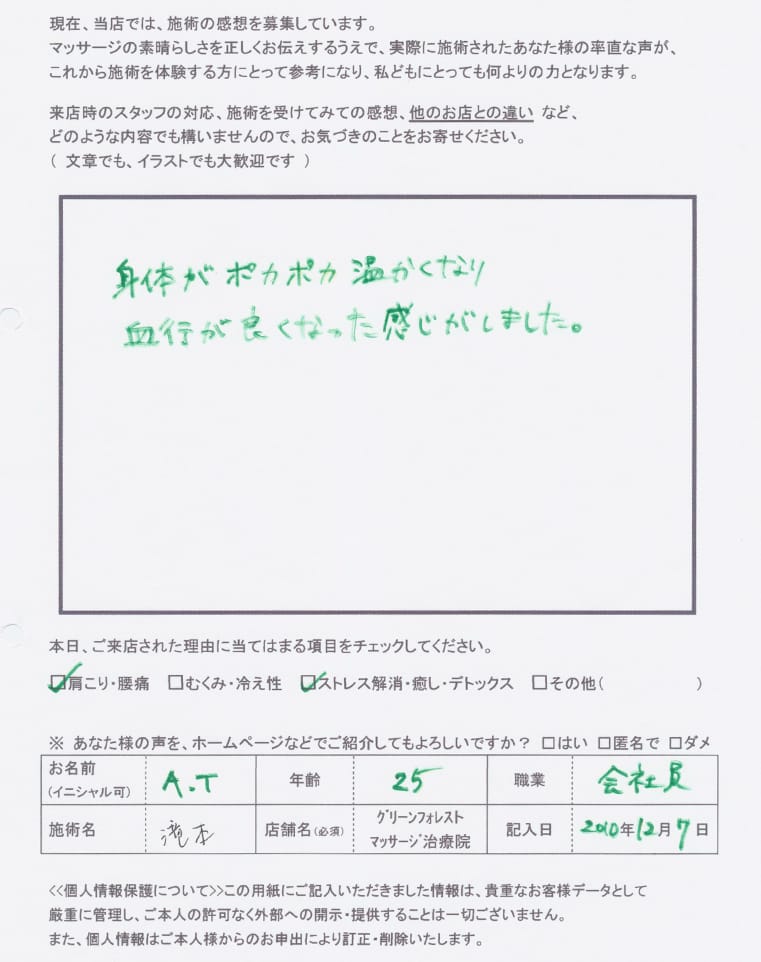 現在、当店では、施術の感想を募集しています。
マッサージの素晴らしさを正しくお伝えするうえで、実際に施術されたあなた様の率直な声が、
これから施術を体験する方にとって参考になり、私どもにとっても何よりの力となります。
来店時のスタッフの対応、施術を受けてみての感想、他のお店との違い など、
どのような内容でも構いませんので、お気づきのことをお寄せください。
( 文章でも、イラストでも大歓迎です )
身体がポカポカ温かくなり
血行が良くなった感じがしました。
本日、ご来店された理由に当てはまる項目をチェックしてください。
☑肩こり・腰痛 □むくみ・冷え性 ☑ストレス解消・癒し・デトックス □その他( )
※ あなた様の声を、ホームページなどでご紹介してもよろしいですか? □はい □匿名で □ダメ
お名前 (イニシャル可) A.T 年齢 25 職業 会社員
施術名 滝本 店舗名(必須) グリーンフォレスト マッサージ治療院 記入日 2010年12月7日
<<個人情報保護について>>この用紙にご記入いただきました情報は、貴重なお客様データとして
厳重に管理し、ご本人の許可なく外部への開示・提供することは一切ございません。
また、個人情報はご本人様からのお申出により訂正・削除いたします。